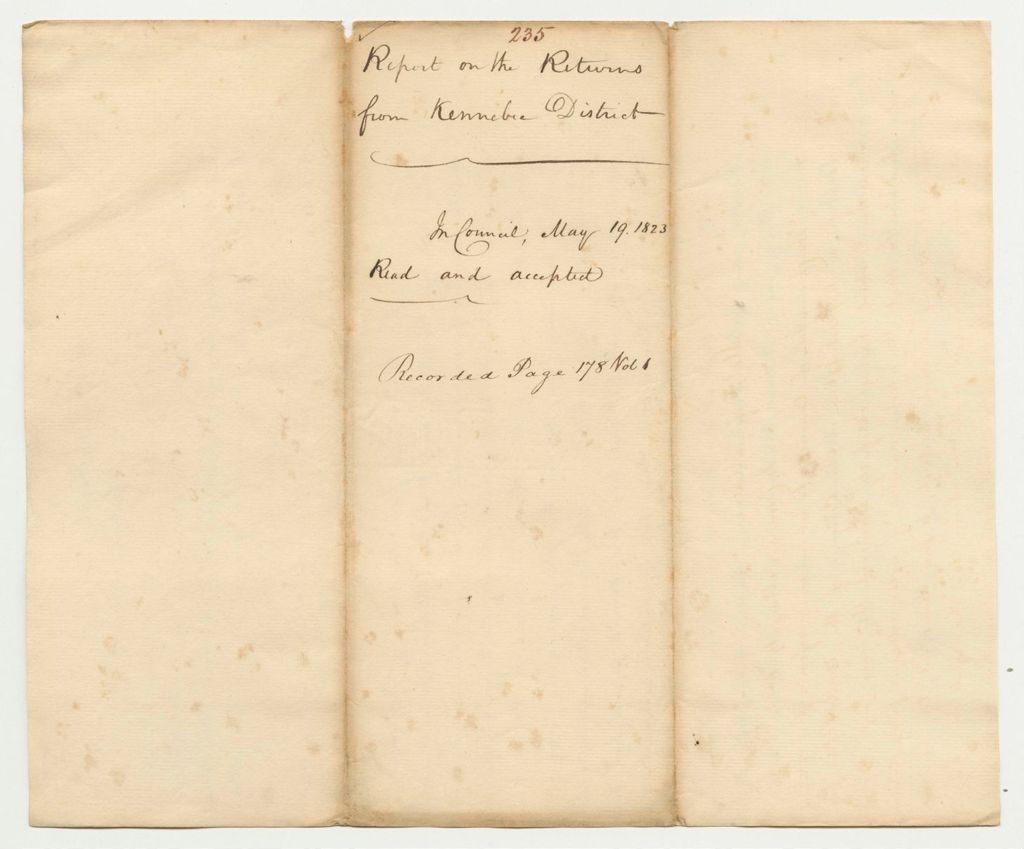 235
Report on the Returns
from Kennebec District
In Council, May 19. 1823
Read and accepted
Recorded Page 178 Vol 1